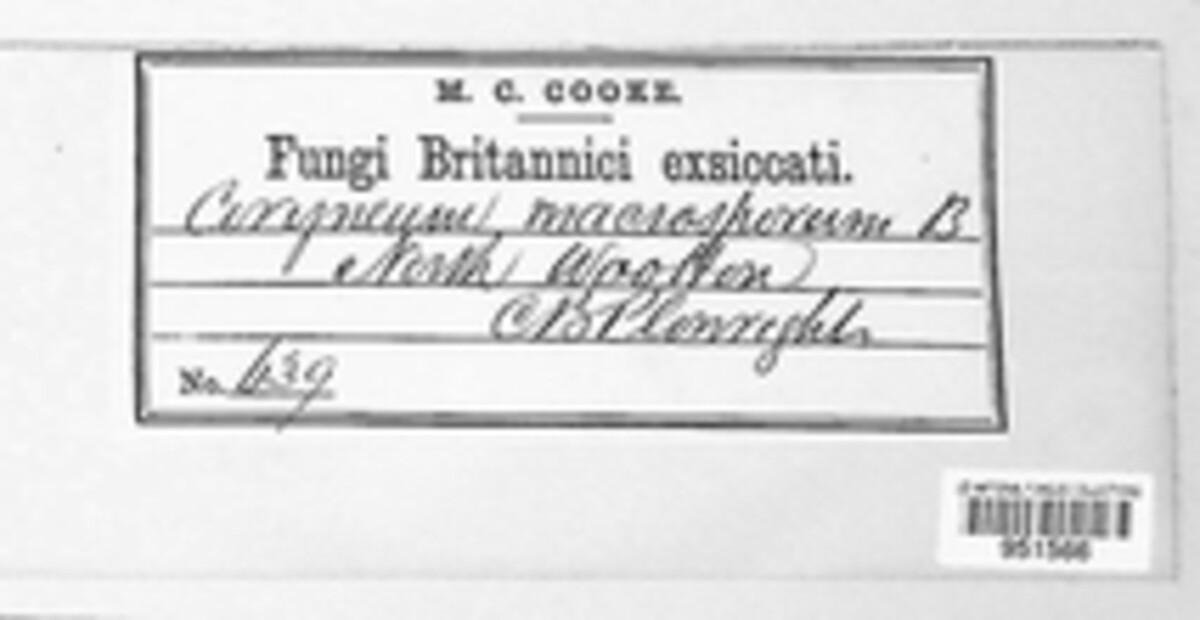 M. C. COOKE.
Fungi Britannici exsiccati.
Coryneum macrosporum B
North Wootton
C B Plowright
No. 439
951566